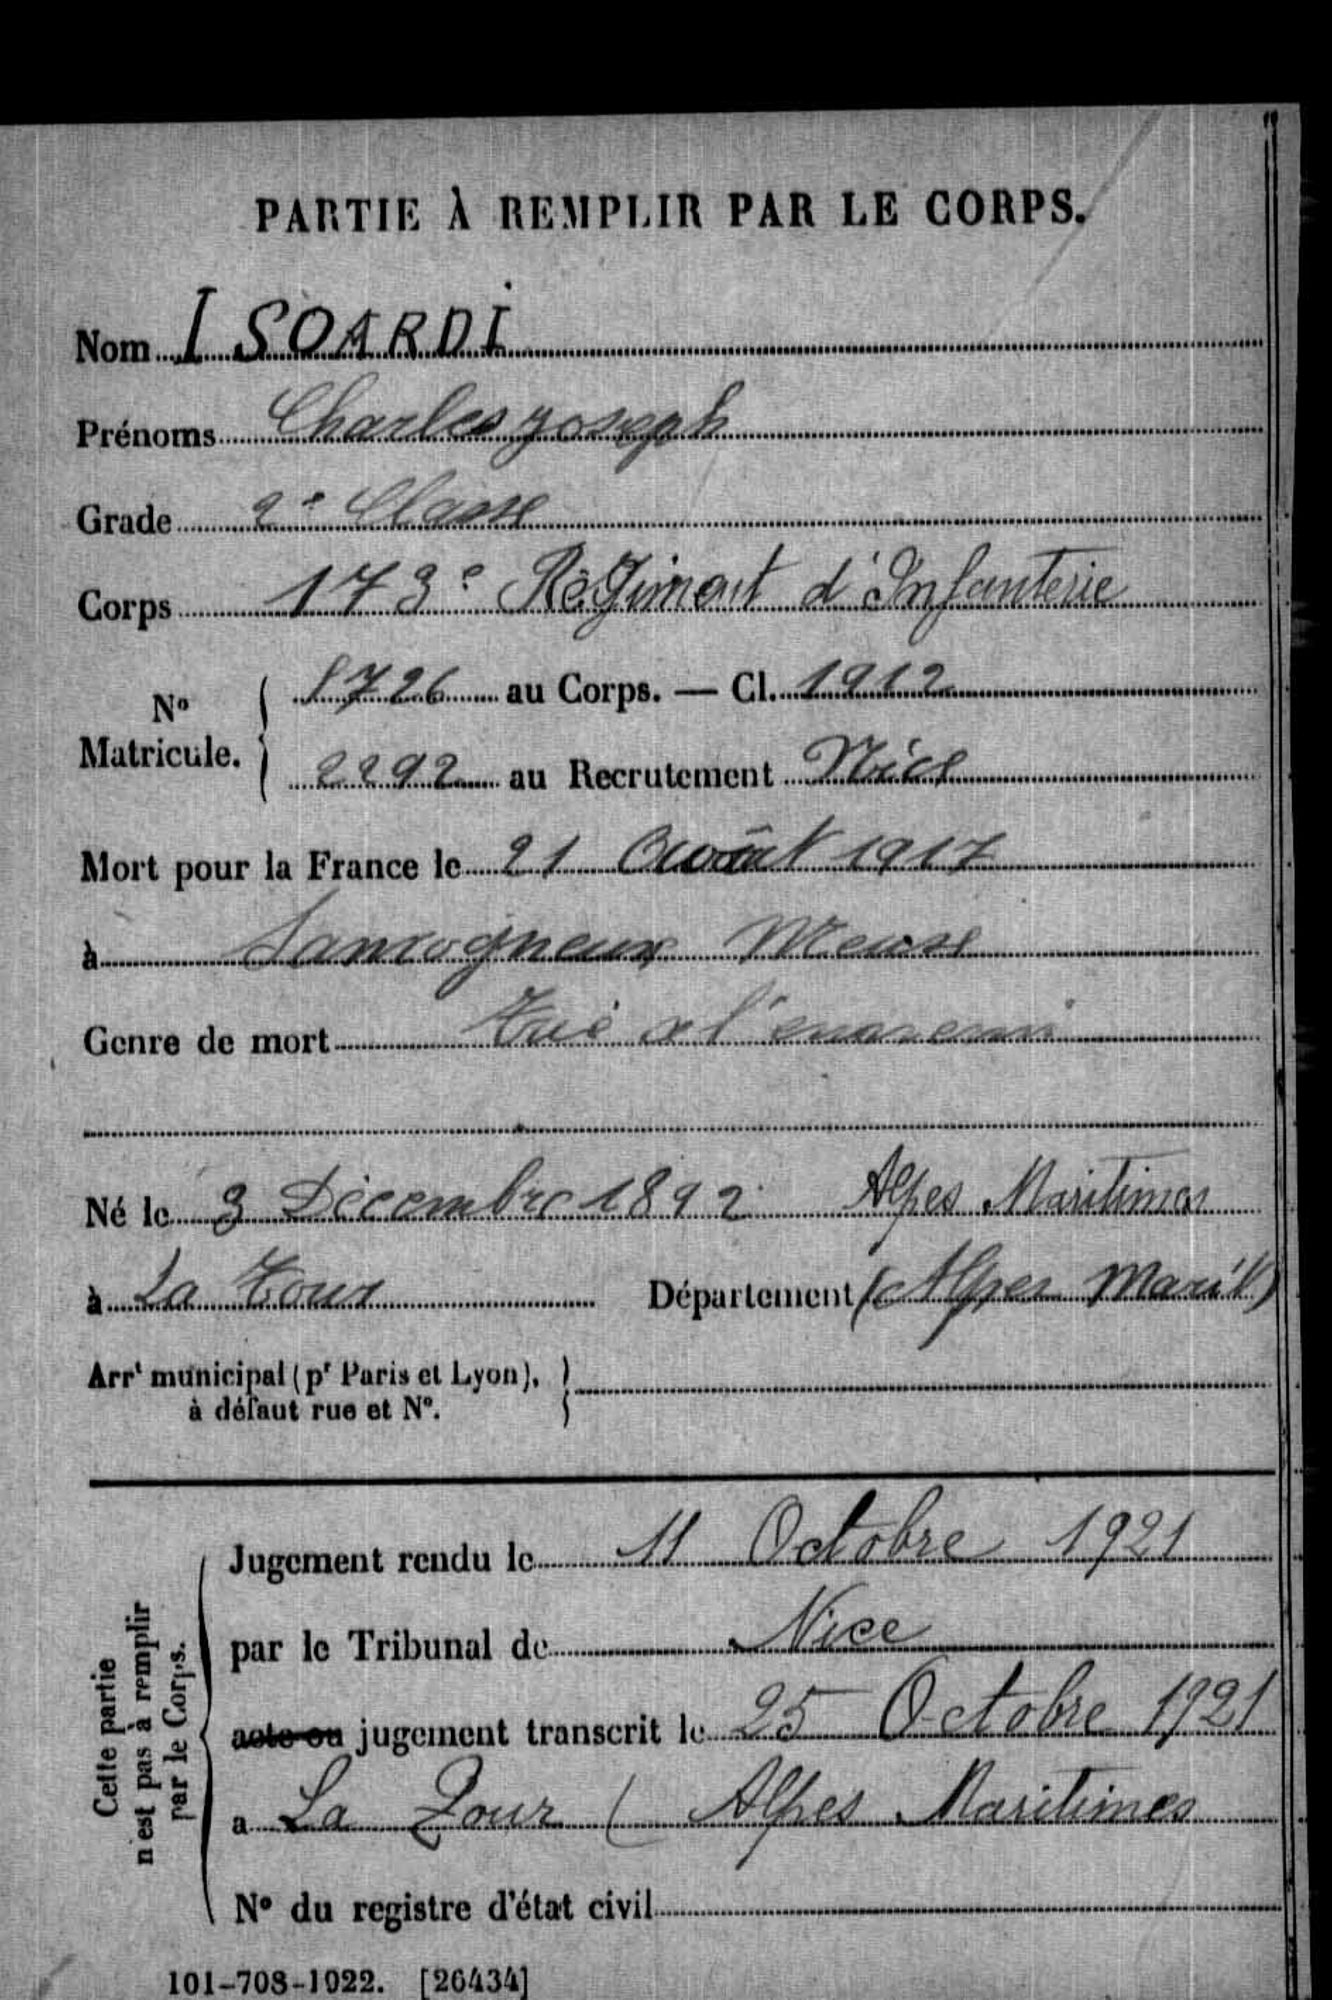 PARTIE À REMPLIR PAR LE CORPS.
Nom ISOARDI
Prénoms Charles Joseph
Grade 2e Classe
Corps 173e Régiment d'Infanterie
No Matricule. { 8726 au Corps. — Cl. 1912
2292 au Recrutement Nice
Mort pour la France le 21 Août 1917
à Samogneux Meuse
Genre de mort Tué a l'ennemi
Né le 3 Décembre 1892 Alpes Maritimes
à La Tour Département (Alpes Marit)
Arrt municipal (pr Paris et Lyon), }
à défaut rue et No.
Cette partie
n'est pas à remplir
par le Corps.
Jugement rendu le 11 Octobre 1921
par le Tribunal de Nice
acte ou jugement transcrit le 25 Octobre 1921
a La Tour ( Alpes Maritimes
No du registre d'état civil
101-708-1022. [26434]